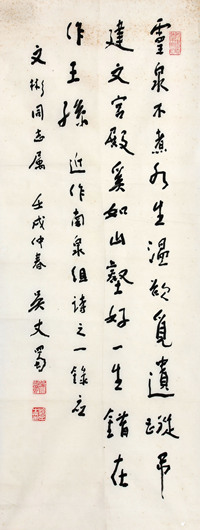 靈泉不煮水生溫欲覓遺蹤吊
建文宮殿奚如山壑好一生錯在
作王孫 近作南泉組詩之一錄应
文彬同志属 壬戌仲春 吴丈蜀